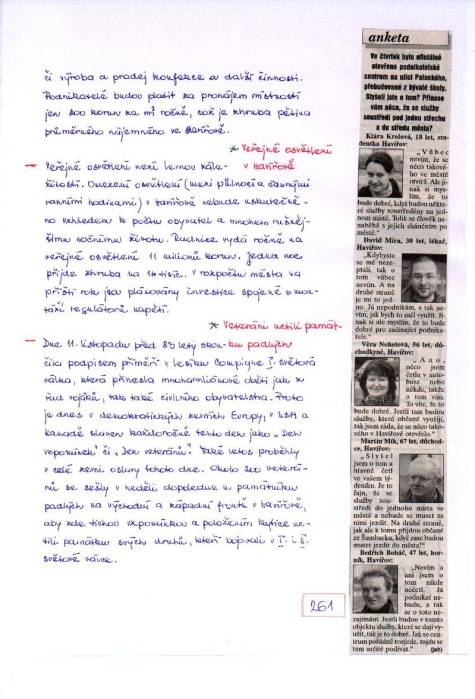 či výroba a prodej konfekce a další činnosti.
Podnikatelé budou platit za pronájem místností
jen 200 korun za m² ročně, což je zhruba pětina
průměrného nájemného ve Havířově.
* Veřejné osvětlení
v Havířově
Veřejné osvětlení není levnou zále-
žitostí. Omezení osvětlení (mezi půlnocí a časnými
ranními hodinami) v Havířově nebude uskutečně-
no vzhledem k počtu obyvatel a mnohem rušněj-
šímu nočnímu životu. Radnice vydá ročně na
veřejné osvětlení 11 milionů korun. Jedna noc
přijde zhruba na 14 tisíc. V rozpočtu města na
příští rok jsou plánovány investice spojené s mon-
táží regulátorů napětí.
* Veteráni uctili památ-
ku padlých
Dne 11. listopadu před 83 lety skon-
čila podpisem příměří v lesíku Compiegne I. světová
válka, která přinesla mnohamiliónové oběti jak z
řad vojáků, tak také civilního obyvatelstva. Proto
je dnes v demokratických zemích Evropy, v USA a
Kanadě slaven každoročně tento den jako „Den
vzpomínek" či „Den veteránů". Také letos proběhly
v celé zemi oslavy tohoto dne. Okolo 200 veterá-
nů se sešly v neděli dopoledne u památníku
padlých na východní a západní frontě v Havířově,
aby zde tichou vzpomínkou a položením kytice uc-
tili památku svých druhů, kteří bojovali v I. i II.
světové válce.
261
anketa
Ve čtvrtek bylo oficiálně
otevřeno podnikatelské
centrum na ulici Palackého,
přebudované z bývalé školy.
Slyšeli jste o tom? Přinese
vám něco, že se služby
soustředí pod jednu střechu
a do středu města?
Klára Krolová, 18 let, stu-
dentka Havířov:
„Vůbec
nevím, že se
něco takové-
ho ve městě
otvírá. Ale ji-
nak si mys-
lím, že to
bude dobré, když budou někte-
ré služby soustředěny na jed-
nom místě. Tolik se člověk ne-
naběhá s jejich sháněním po
městě."
David Míra, 30 let, lékař,
Havířov:
„Kdybyste
se mě neze-
ptali, tak o
tom vůbec
nevím. A na
druhé straně
je mi to jed-
no. Já nepodnikám, a tak ne-
vím, jak bych to měl využít. Ji-
nak si ale myslím, že to bude
dobré pro začínající podnika-
tele."
Věra Nohelová, 56 let, dů-
chodkyně, Havířov:
„Ano,
něco jsem
četla v auto-
buse nebo
někde, takže
o tom vím.
To víte, že to
bude dobré. Jestli tam budou
služby, které občané využijí,
tak jsem ráda, že se něco tako-
vého v Havířově otevřelo."
Martin Mik, 67 let, důchod-
ce, Havířov:
„Slyšel
jsem o tom a
hlavně četl
ve vašem tý-
deníku. Je to
fajn, že se
služby sou-
středí do jednoho místa ve
městě a nebude se muset za
nimi jezdit. Na druhé straně,
jak ale k tomu přijdou občané
ze Šumbarka, když zase budou
muset jezdit do města?"
Bedřich Boháč, 47 let, hor-
ník, Havířov:
„Nevím a
ani jsem o
tom nikde
nečetl. Já
podnikat ne-
budu, a tak
se o toto ne-
zajímám. Jestli budou v tomto
objektu služby, které se dají vy-
užít, tak je to dobré. Jak se cen-
trum pořádně rozjede, zajdu se
tam určitě podívat."
(jah)